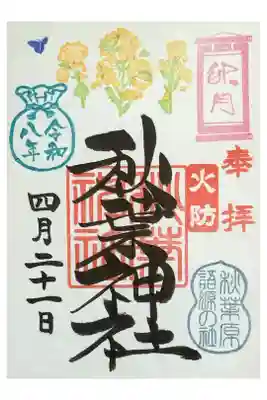 卯月
奉拝
火防
秋葉神社
秋葉神社
秋葉原
語源の社
令和
八年
四月二十一日